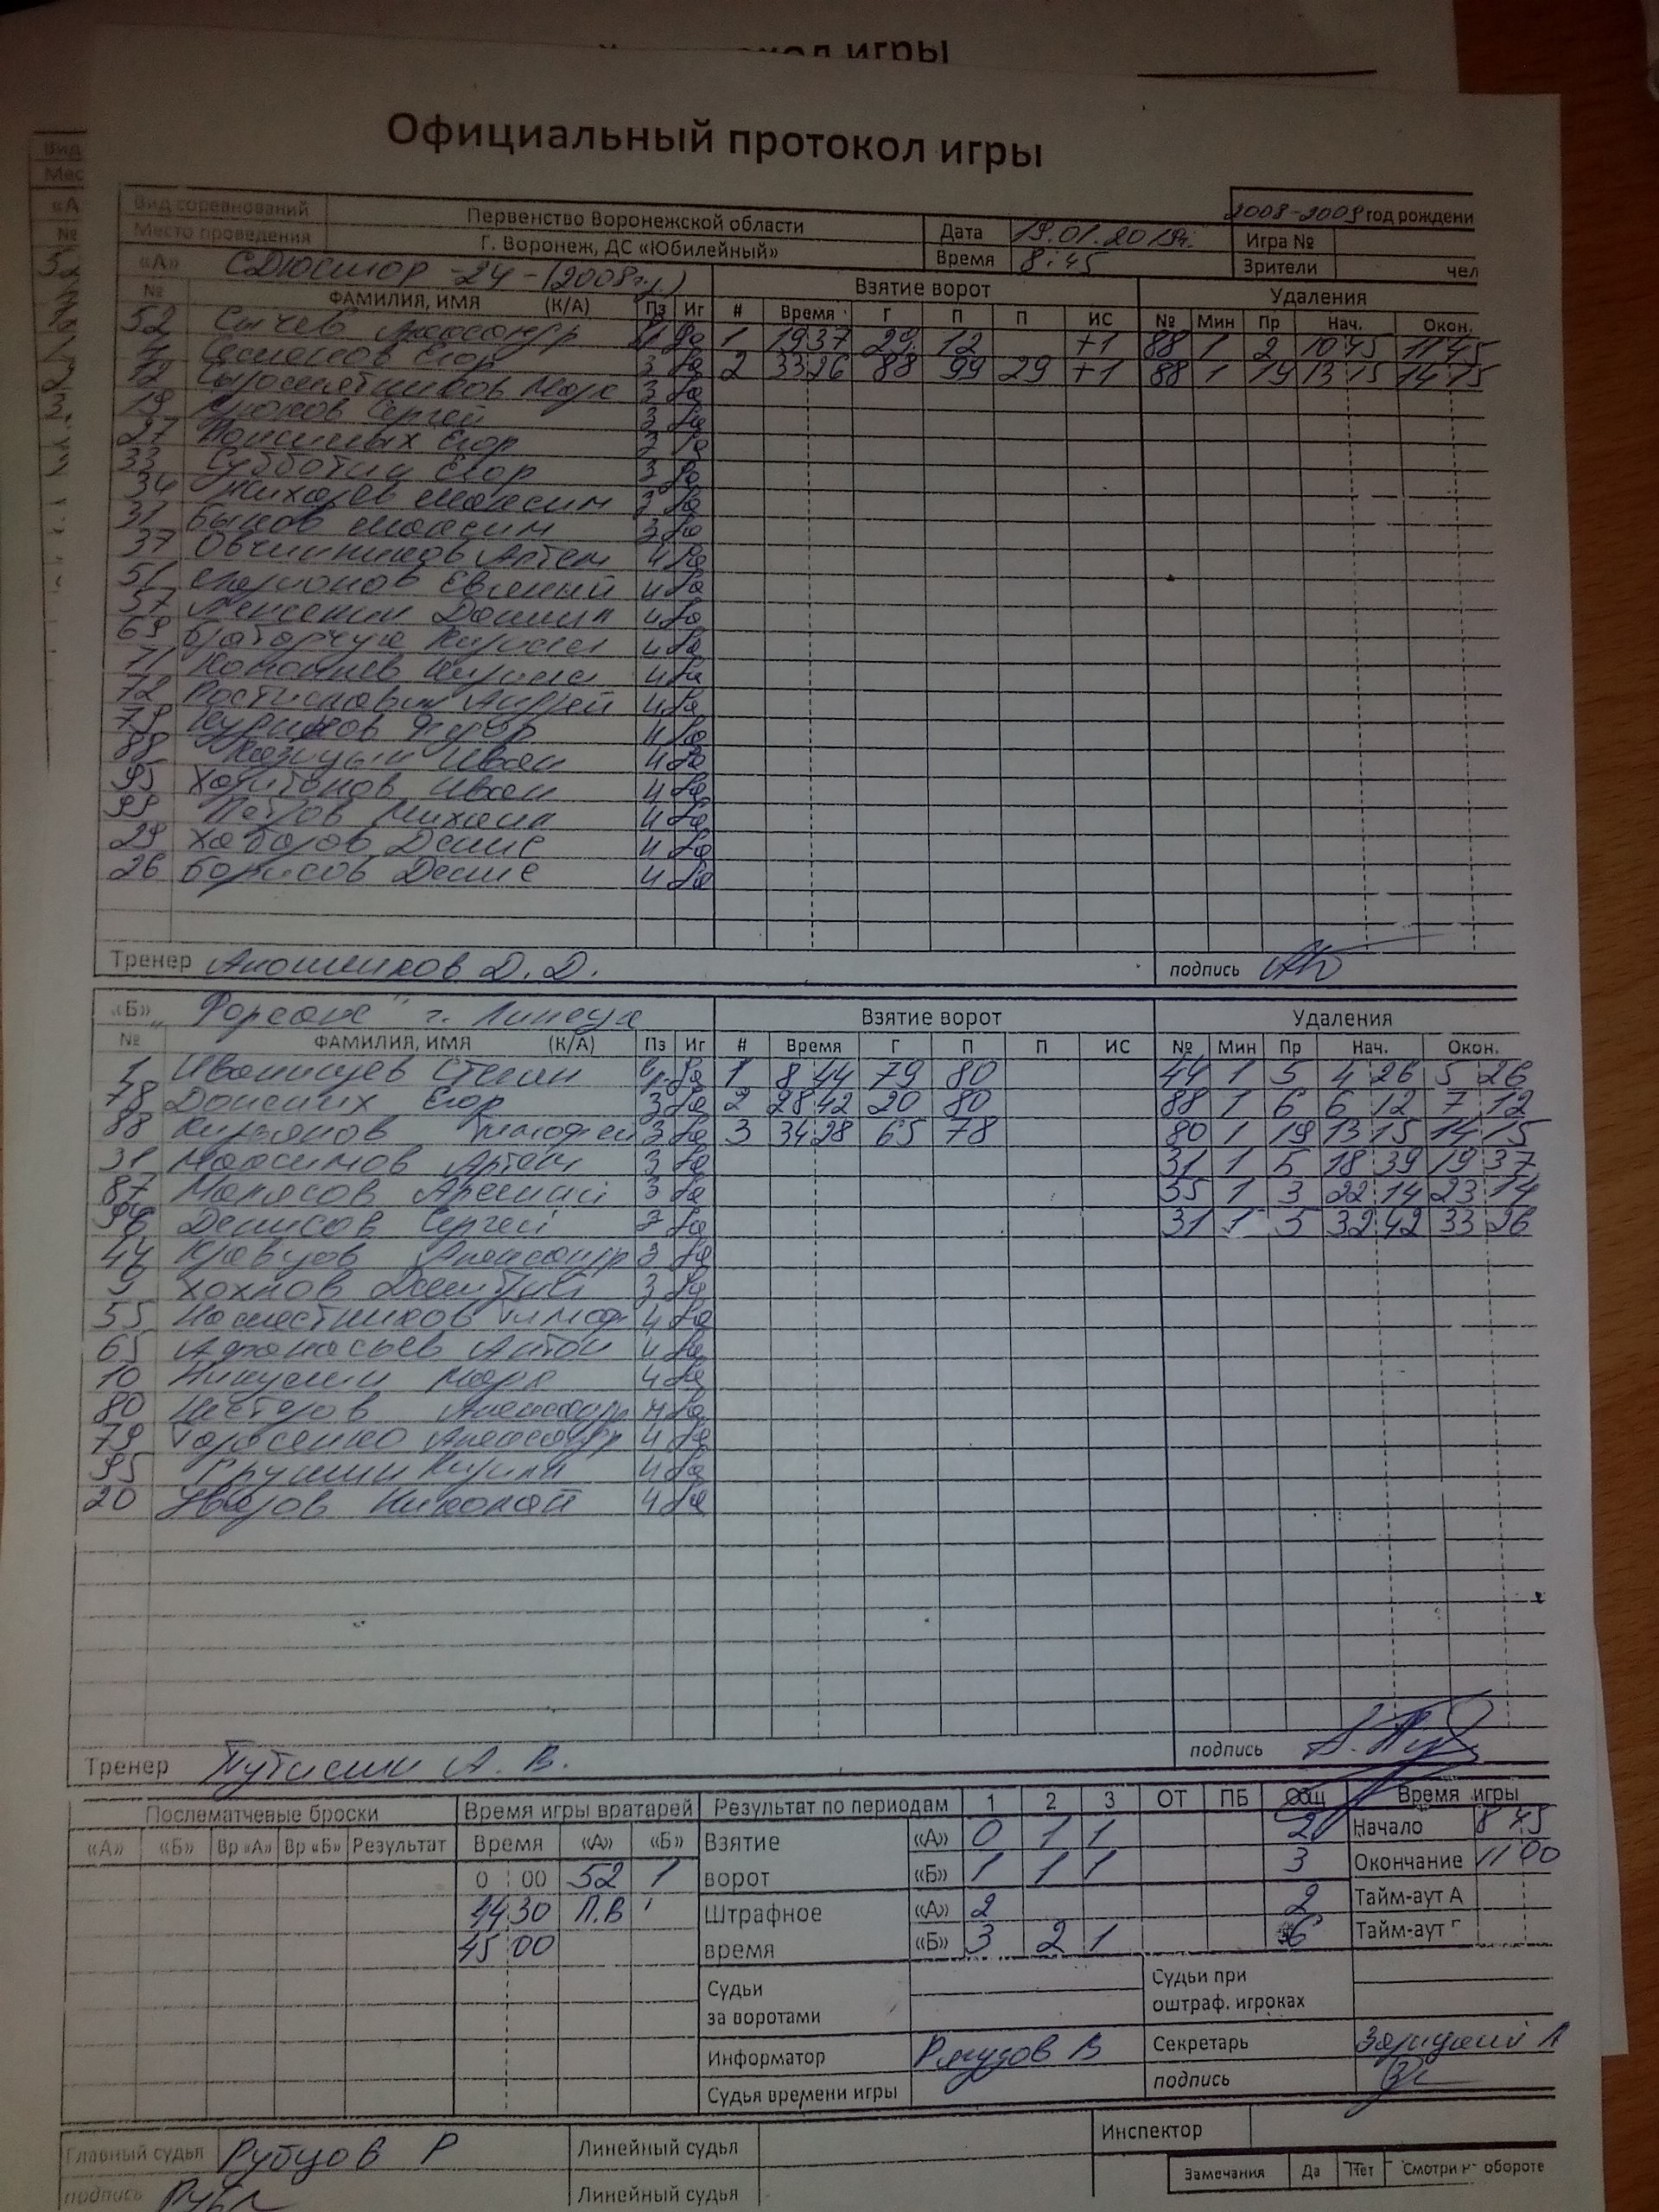 кол игры
Официальный протокол игры
Вид соревнований Первенство Воронежской области 2008-2009 год рождени
Место проведения Г. Воронеж, ДС «Юбилейный» Дата 19.01.2019г. Игра №
Время 8:45 Зрители чел
«А» СДЮСШОР-24-(2008г.р.) Взятие ворот Удаления
№ ФАМИЛИЯ, ИМЯ (К/А) Пз Иг # Время Г П П ИС № Мин Пр Нач. Окон.
52 Сычев Александр Да 1 19 37 29 12 +1 88 1 2 10 45 11 45
Егор 3 Да 2 33 26 88 99 29 +1 88 1 19 13 15 14 15
12 Сыромятников Марк 3 Да
19 Крюков Сергей 3 Да
27 Егор 3 Да
33 Субботин Егор 3 Да
34 Михалев Максим 3 Да
31 Быков Максим 3 Да
37 Овчинников Артем 4 Да
51 Евгений 4 Да
57 Даниил 4 Да
69 Кирилл 4 Да
71 Кирилл 4 Да
72 Ростиславин Андрей 4 Да
79 4 Да
88 Иван 4 Да
95 Харитонов Иван 4 Да
99 Петров Михаил 4 Да
29 Хабаров Денис 4 Да
26 Борисов Денис 4 Да
Тренер Д. Д. подпись
«Б» „Форсаж" г. Липецк Взятие ворот Удаления
№ ФАМИЛИЯ, ИМЯ (К/А) Пз Иг # Время Г П П ИС № Мин Пр Нач. Окон.
1 Иванищев Степан Да 1 8 44 79 80 44 1 5 4 26 5 26
78 Донских Егор 3 Да 2 28 42 20 80 88 1 6 6 12 7 12
88 Кирьянов Тимофей 3 Да 3 34 28 65 78 80 1 19 13 15 14 15
31 Максимов Артем 3 Да 31 1 5 18 39 19 37
87 Арсений 3 Да 55 1 3 22 14 23 14
Денисов Сергей 3 Да 31 1 5 32 42 33 26
44 Кравцов Александр 3 Да
9 Хохлов Дмитрий 3 Да
55 Наместников Тимоф 4 Да
65 Афанасьев Антон 4 Да
10 Никулин Марк 4 Да
80 Нестеров Александр 4 Да
79 Тарасенко Александр 4 Да
95 Грушин Кирилл 4 Да
20 Уваров Николай 4 Да
Тренер А. В. подпись
Послематчевые броски Время игры вратарей Результат по периодам 1 2 3 ОТ ПБ Общ Время игры
«А» «Б» Вр «А» Вр «Б» Результат Время «А» «Б» Взятие «А» 0 1 1 2 Начало 8 45
0 00 52 1 ворот «Б» 1 1 1 3 Окончание 11 00
44 30 П.В ' Штрафное «А» 2 2 Тайм-аут А
45 00 время «Б» 3 2 1 6 Тайм-аут
Судьи за воротами Судьи при оштраф. игроках
Информатор В Секретарь Зарицкий А
Судья времени игры подпись
Главный судья Рубцов Р Линейный судья Инспектор
подпись Линейный судья Замечания Да Нет Смотри на обороте